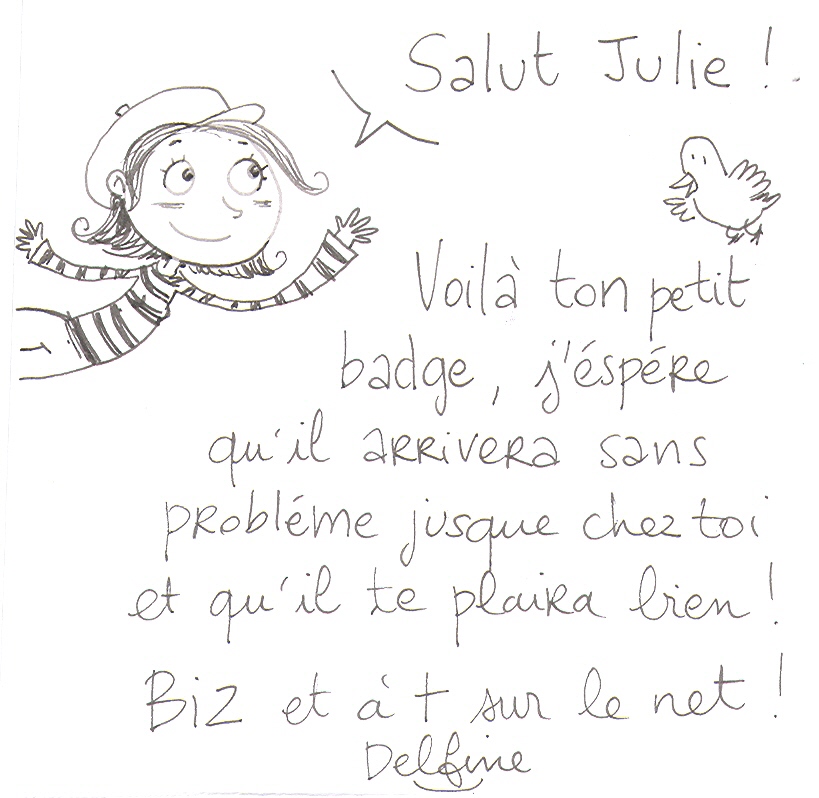 Salut Julie !
Voilà ton petit
badge, j'éspére
qu'il arrivera sans
probléme jusque chez toi
et qu'il te plaira bien !
Biz et à + sur le net !
Delfine